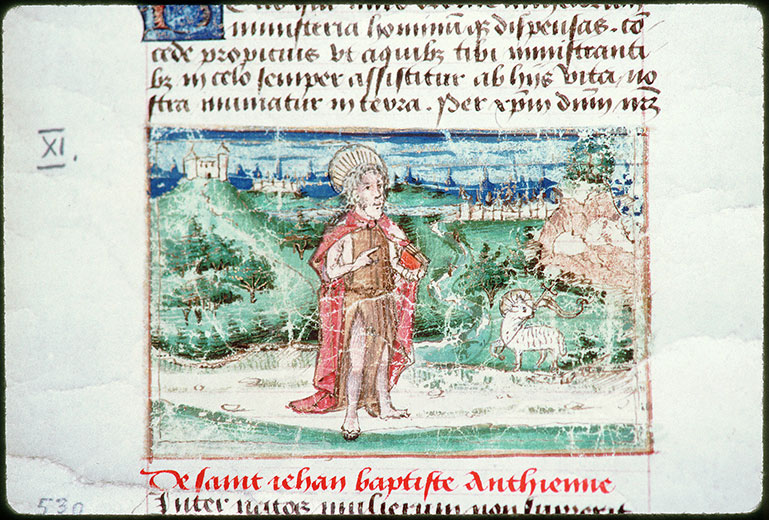 ministeria hominumqz dispensas. cō
cede propicius vt a quibz tibi ministranti
bz in celo semper assistitur ab hijs vita no
stra muniatur in terra. Per xp̄m dnm̄ nr̄z
XI.
De saint iehan baptiste Anthienne
Inter natos mulierum non surrexit
530